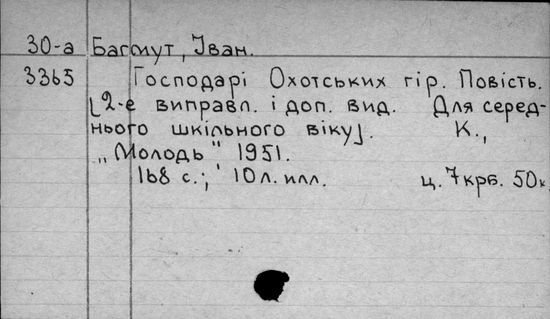 30-а Багмут, Іван.
3365 Господарі Охотських гір. Повість.
[2-е виправл. і доп. вид. Для серед-
нього шкільного віку]. К.,
„Молодь" 1951.
168 с.; 10 л. илл. ц. 7 крб. 50 к.